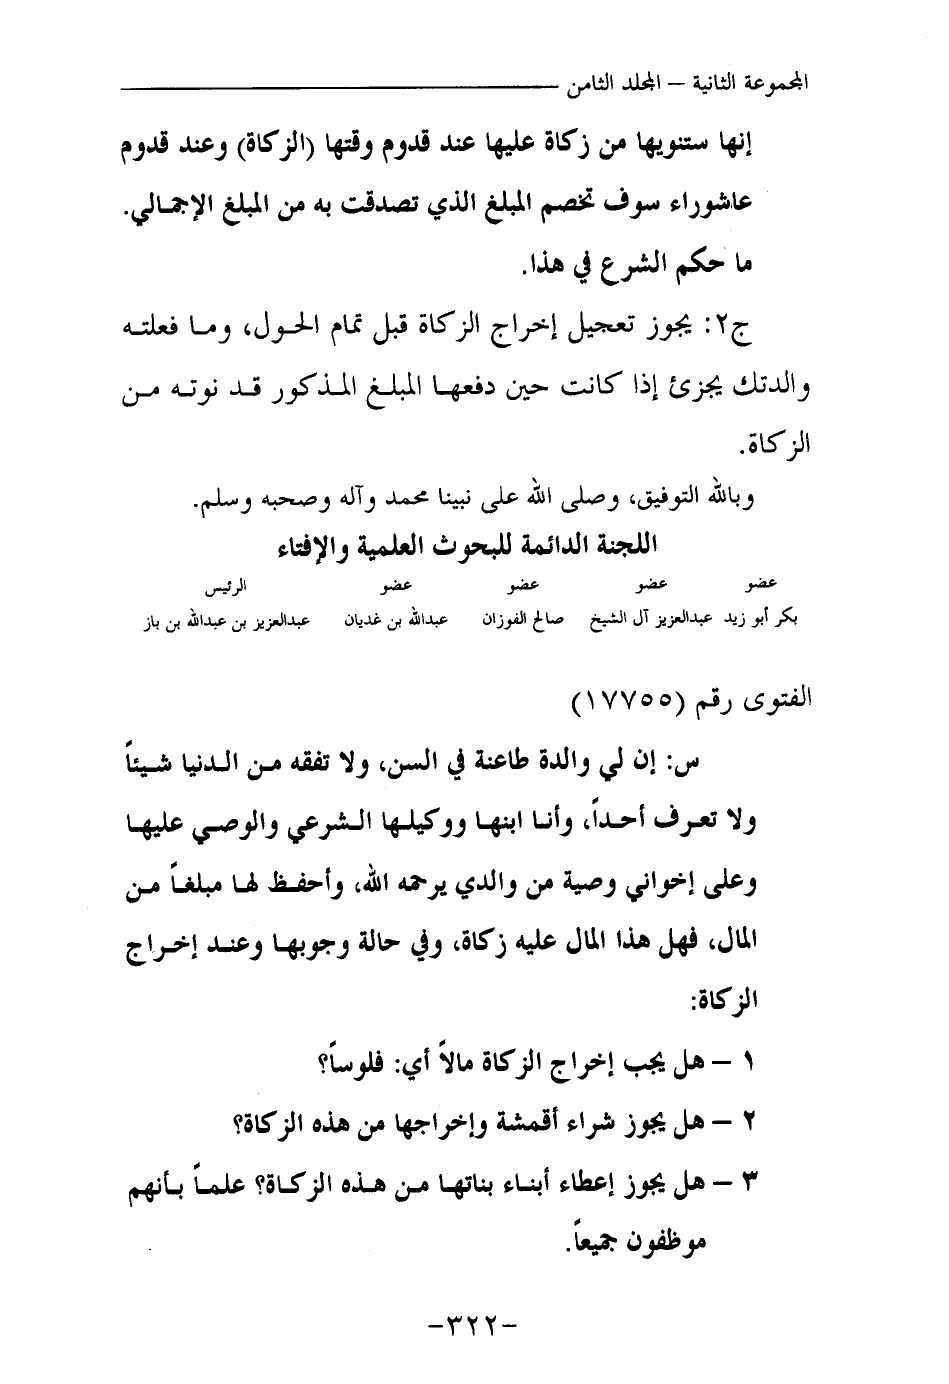 المجموعة الثانية – المجلد الثامن
إنها ستنويها من زكاة عليها عند قدوم وقتها (الزكاة) وعند قدوم
عاشوراء سوف تخصم المبلغ الذي تصدقت به من المبلغ الإجمالي.
ما حكم الشرع في هذا.
ج٢: يجوز تعجيل إخراج الزكاة قبل تمام الحول، وما فعلته
والدتك يجزئ إذا كانت حين دفعها المبلغ المذكور قد نوته من
الزكاة.
وبالله التوفيق، وصلى الله على نبينا محمد وآله وصحبه وسلم.
اللجنة الدائمة للبحوث العلمية والإفتاء
عضو عضو عضو عضو الرئيس
بكر أبو زيد عبدالعزيز آل الشيخ صالح الفوزان عبدالله بن غديان عبدالعزيز بن عبدالله بن باز
الفتوى رقم (١٧٧٥٥)
س: إن لي والدة طاعنة في السن، ولا تفقه من الدنيا شيئاً
ولا تعرف أحداً، وأنا ابنها ووكيلها الشرعي والوصي عليها
وعلى إخواني وصية من والدي يرحمه الله، وأحفظ لها مبلغاً من
المال، فهل هذا المال عليه زكاة، وفي حالة وجوبها وعند إخراج
الزكاة:
١ – هل يجب إخراج الزكاة مالاً أي: فلوساً؟
٢ – هل يجوز شراء أقمشة وإخراجها من هذه الزكاة؟
٣ – هل يجوز إعطاء أبناء بناتها من هذه الزكاة؟ علماً بأنهم
موظفون جميعاً.
-٣٢٢-